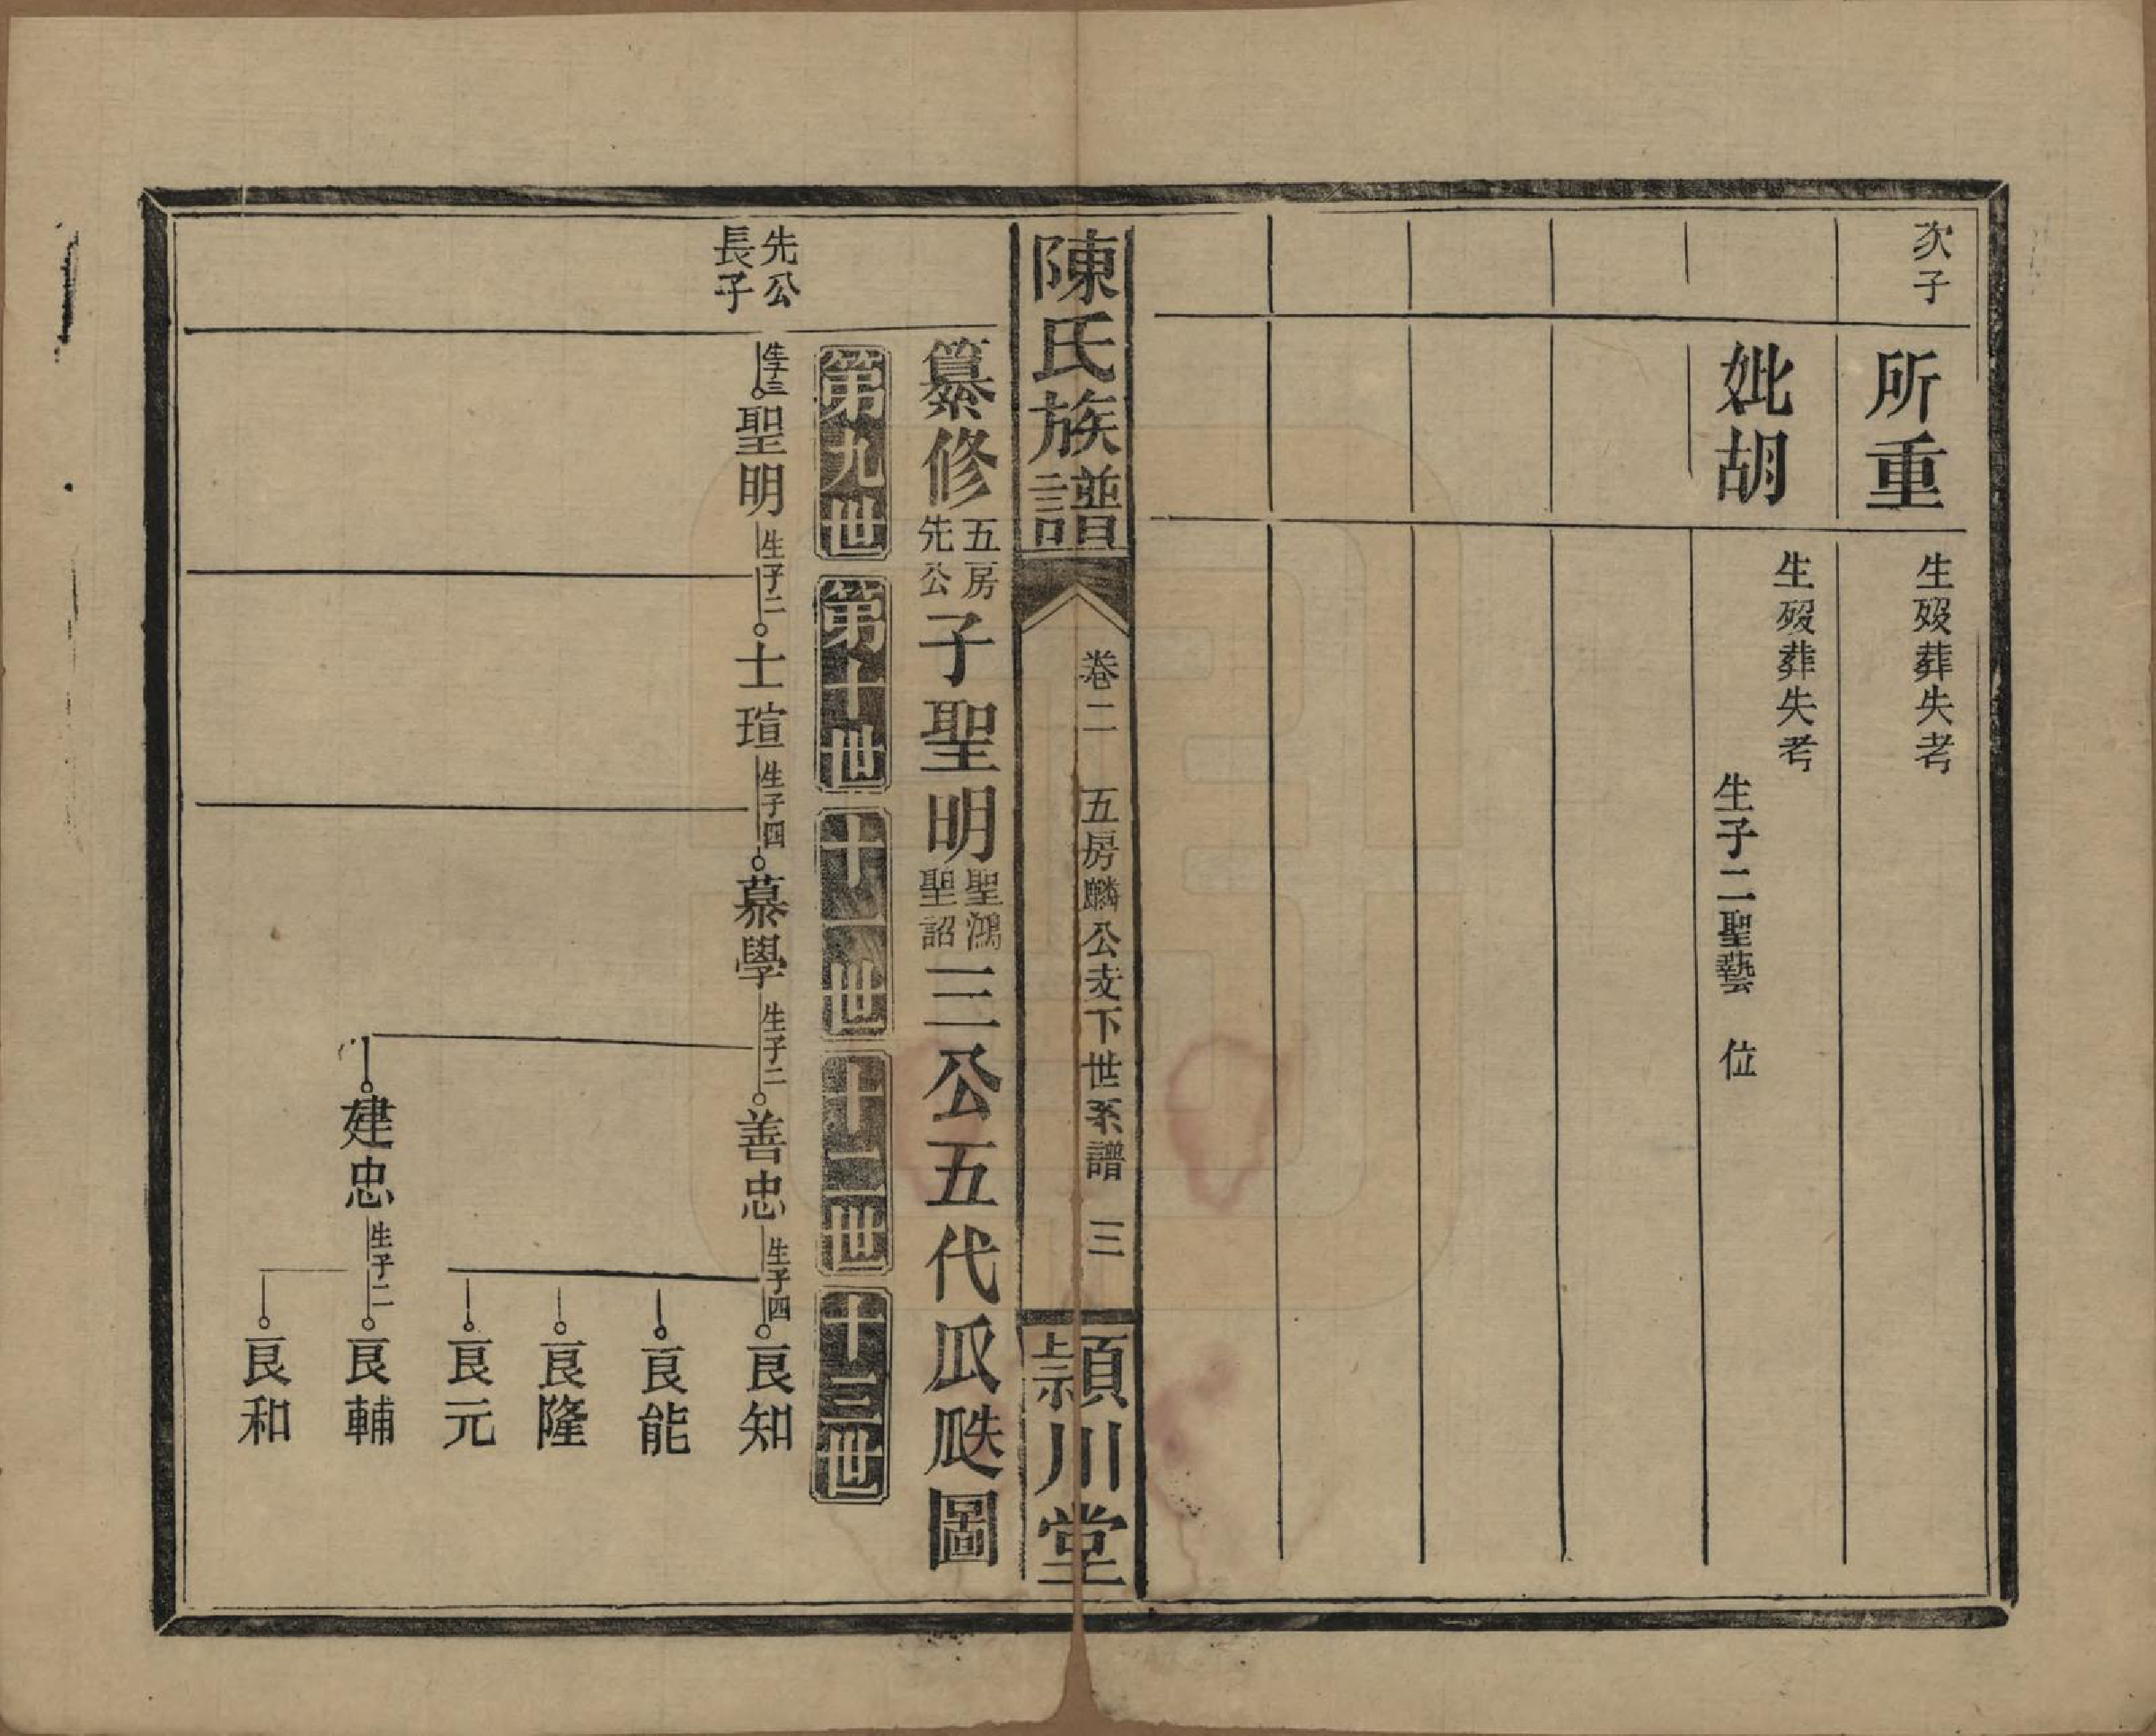 次子
所重
生歿葬失考
妣胡
生歿葬失考
生子二聖藝　位
陳氏族譜
卷二　五房麟公支下世系譜　三
潁川堂
纂修五房先公子聖明聖鴻聖詔三公五代瓜瓞圖
第九世
第十世
十一世
十二世
十三世
先公
長子
生子三
聖明
生子二
士瑄
生子四
慕學
生子二
善忠
生子四
良知
良能
良隆
良元
建忠
生子二
良輔
良和